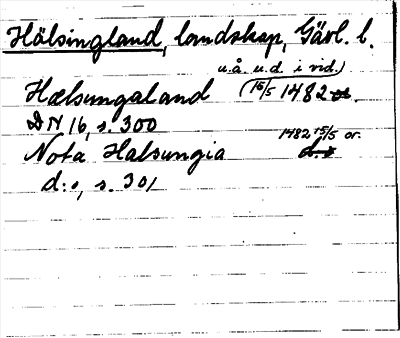 Hälsingland, landskap, Gävl. l.
u.å. u.d. i vid.)
Hælsungaland (15/5 1482
DN 16, s. 300
1482 15/5 or.
Nota Halsungia
d:o, s. 301